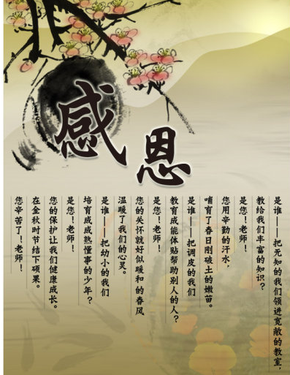 感恩
是谁——把无知的我们领进宽敞的教室，
教给我们丰富的知识？
是您！老师！
您用辛勤的汗水，
哺育了春日刚破土的嫩苗。
是谁——把调皮的我们
教育成能体贴帮助别人的人？
是您！老师！
您的关怀就好似暖和的春风
温暖了我们的心灵。
是谁——把幼小的我们
培育成成熟懂事的少年？
是您！老师！
您的保护让我们健康成长。
在金秋时节结下硕果。
您辛苦了！老师！